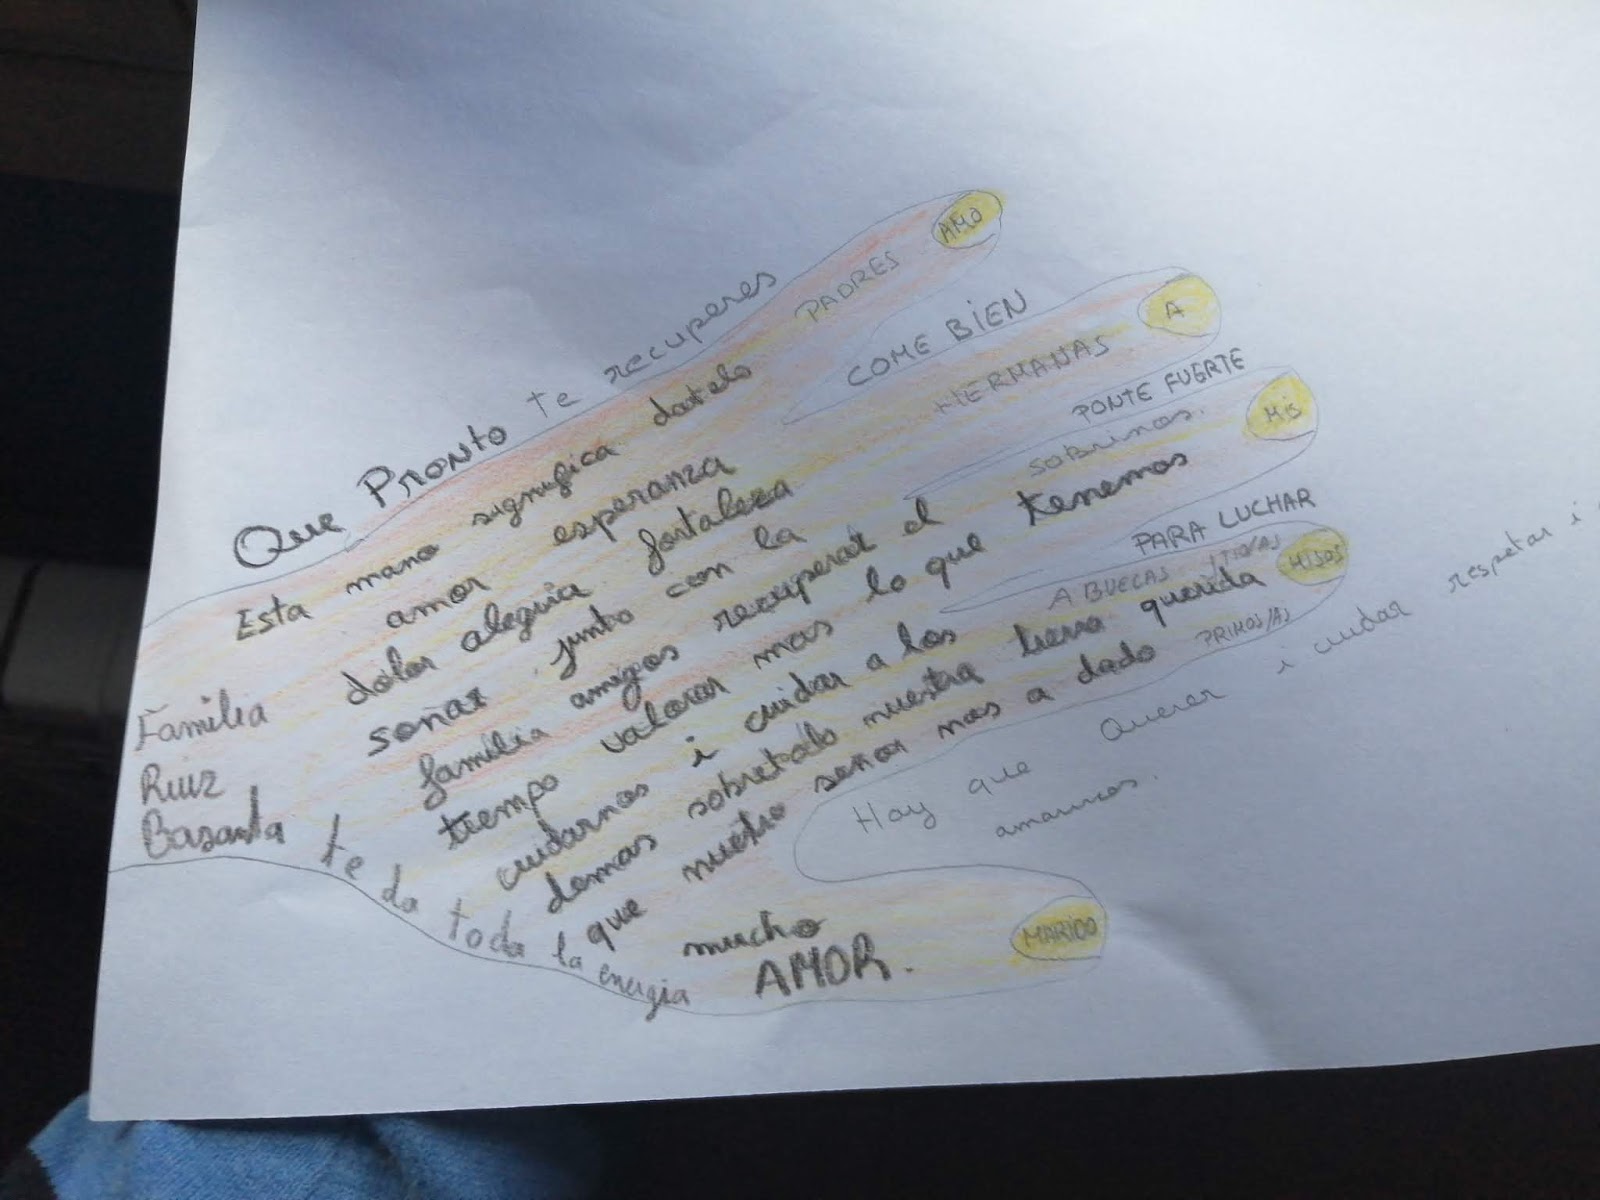 Que Pronto te recuperes
Esta mano significa datelo
amor esperanza
dolor alegria fortaleza
soñar junto con la
familia amigos recuperar el
tiempo valorar mas lo que tenemos
cuidarnos i cuidar a los
demas sobretodo nuestra tierra querida
que nuestro señor nos a dado
mucho
AMOR.
AMO
PADRES
COME BIEN
A
HERMANAS
PONTE FUERTE
MIS
SOBRINOS.
PARA LUCHAR
HIJOS
ABUELAS TIOS/AS
PRIMOS/AS
Hay que Querer i cuidar respetar i
amarnos.
MARIDO
Familia
Ruiz
Basanta te da toda la energia